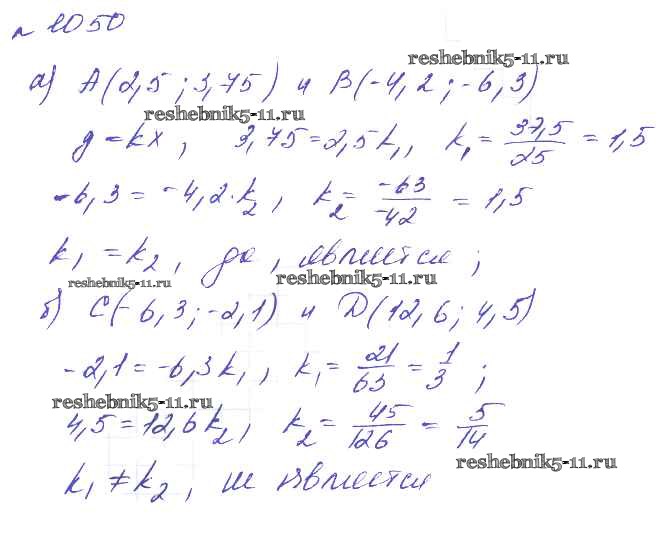 № 1050
reshebnik5-11.ru
а) A(2,5; 3,75) и B(-4,2; -6,3)
reshebnik5-11.ru
y = kx, 3,75 = 2,5k₁, k₁ = 37,5/25 = 1,5
-6,3 = -4,2·k₂, k₂ = -63/-42 = 1,5
k₁ = k₂, да, является;
reshebnik5-11.ru reshebnik5-11.ru
б) C(-6,3; -2,1) и D(12,6; 4,5)
-2,1 = -6,3k₁, k₁ = 21/63 = 1/3;
reshebnik5-11.ru
4,5 = 12,6k₂, k₂ = 45/126 = 5/14
reshebnik5-11.ru
k₁ ≠ k₂, не является